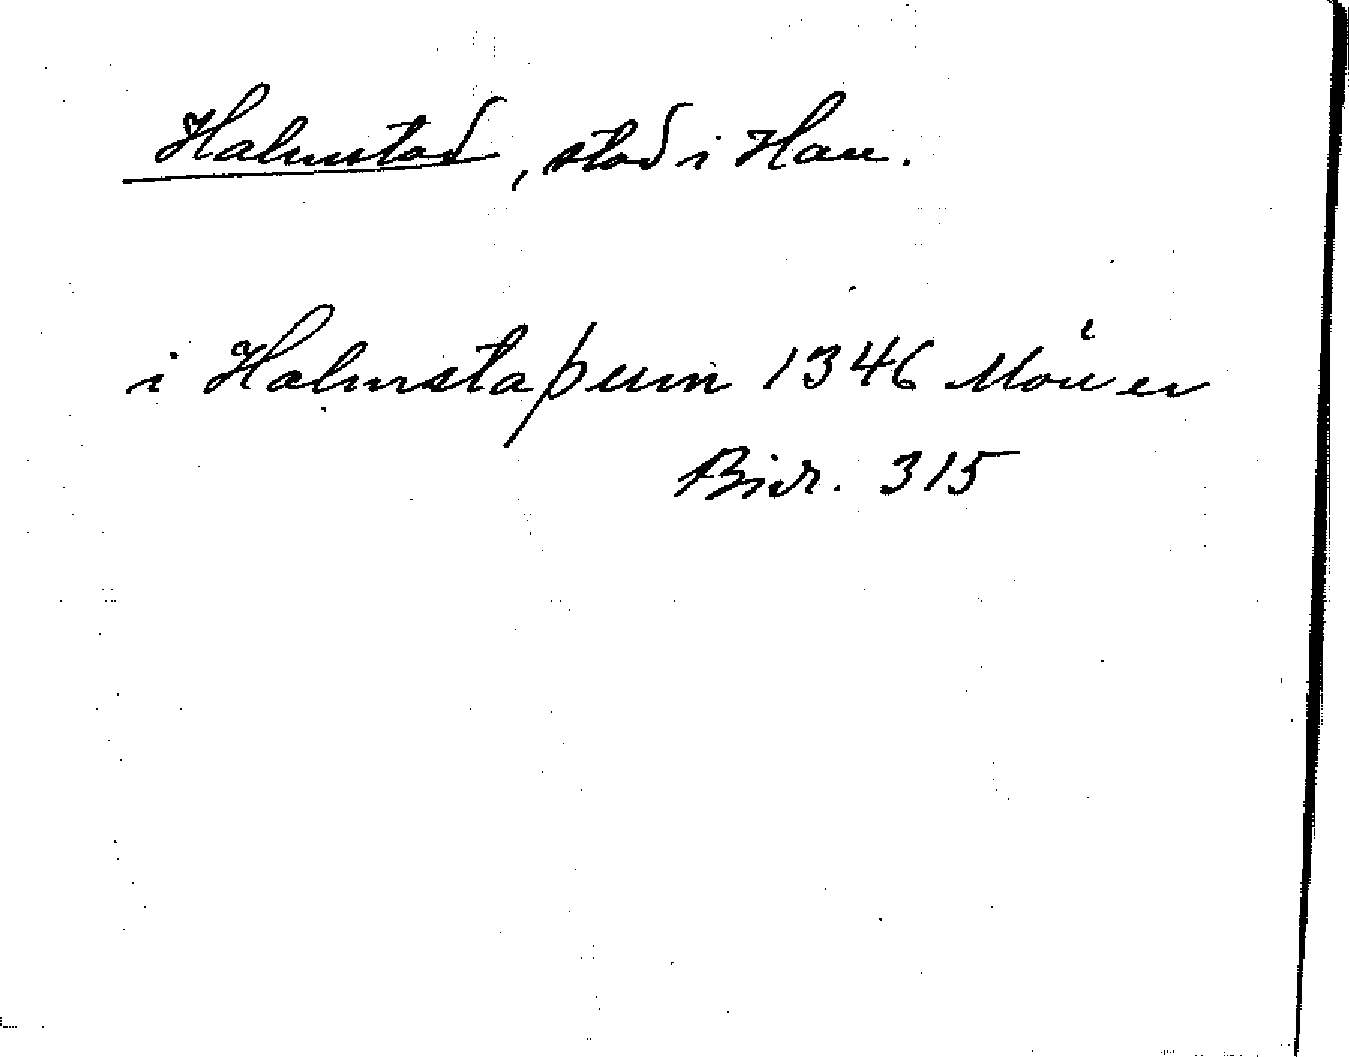 Halmstad, stad i Hall.
i Halmstaþum 1346 Morier
Bidr. 315